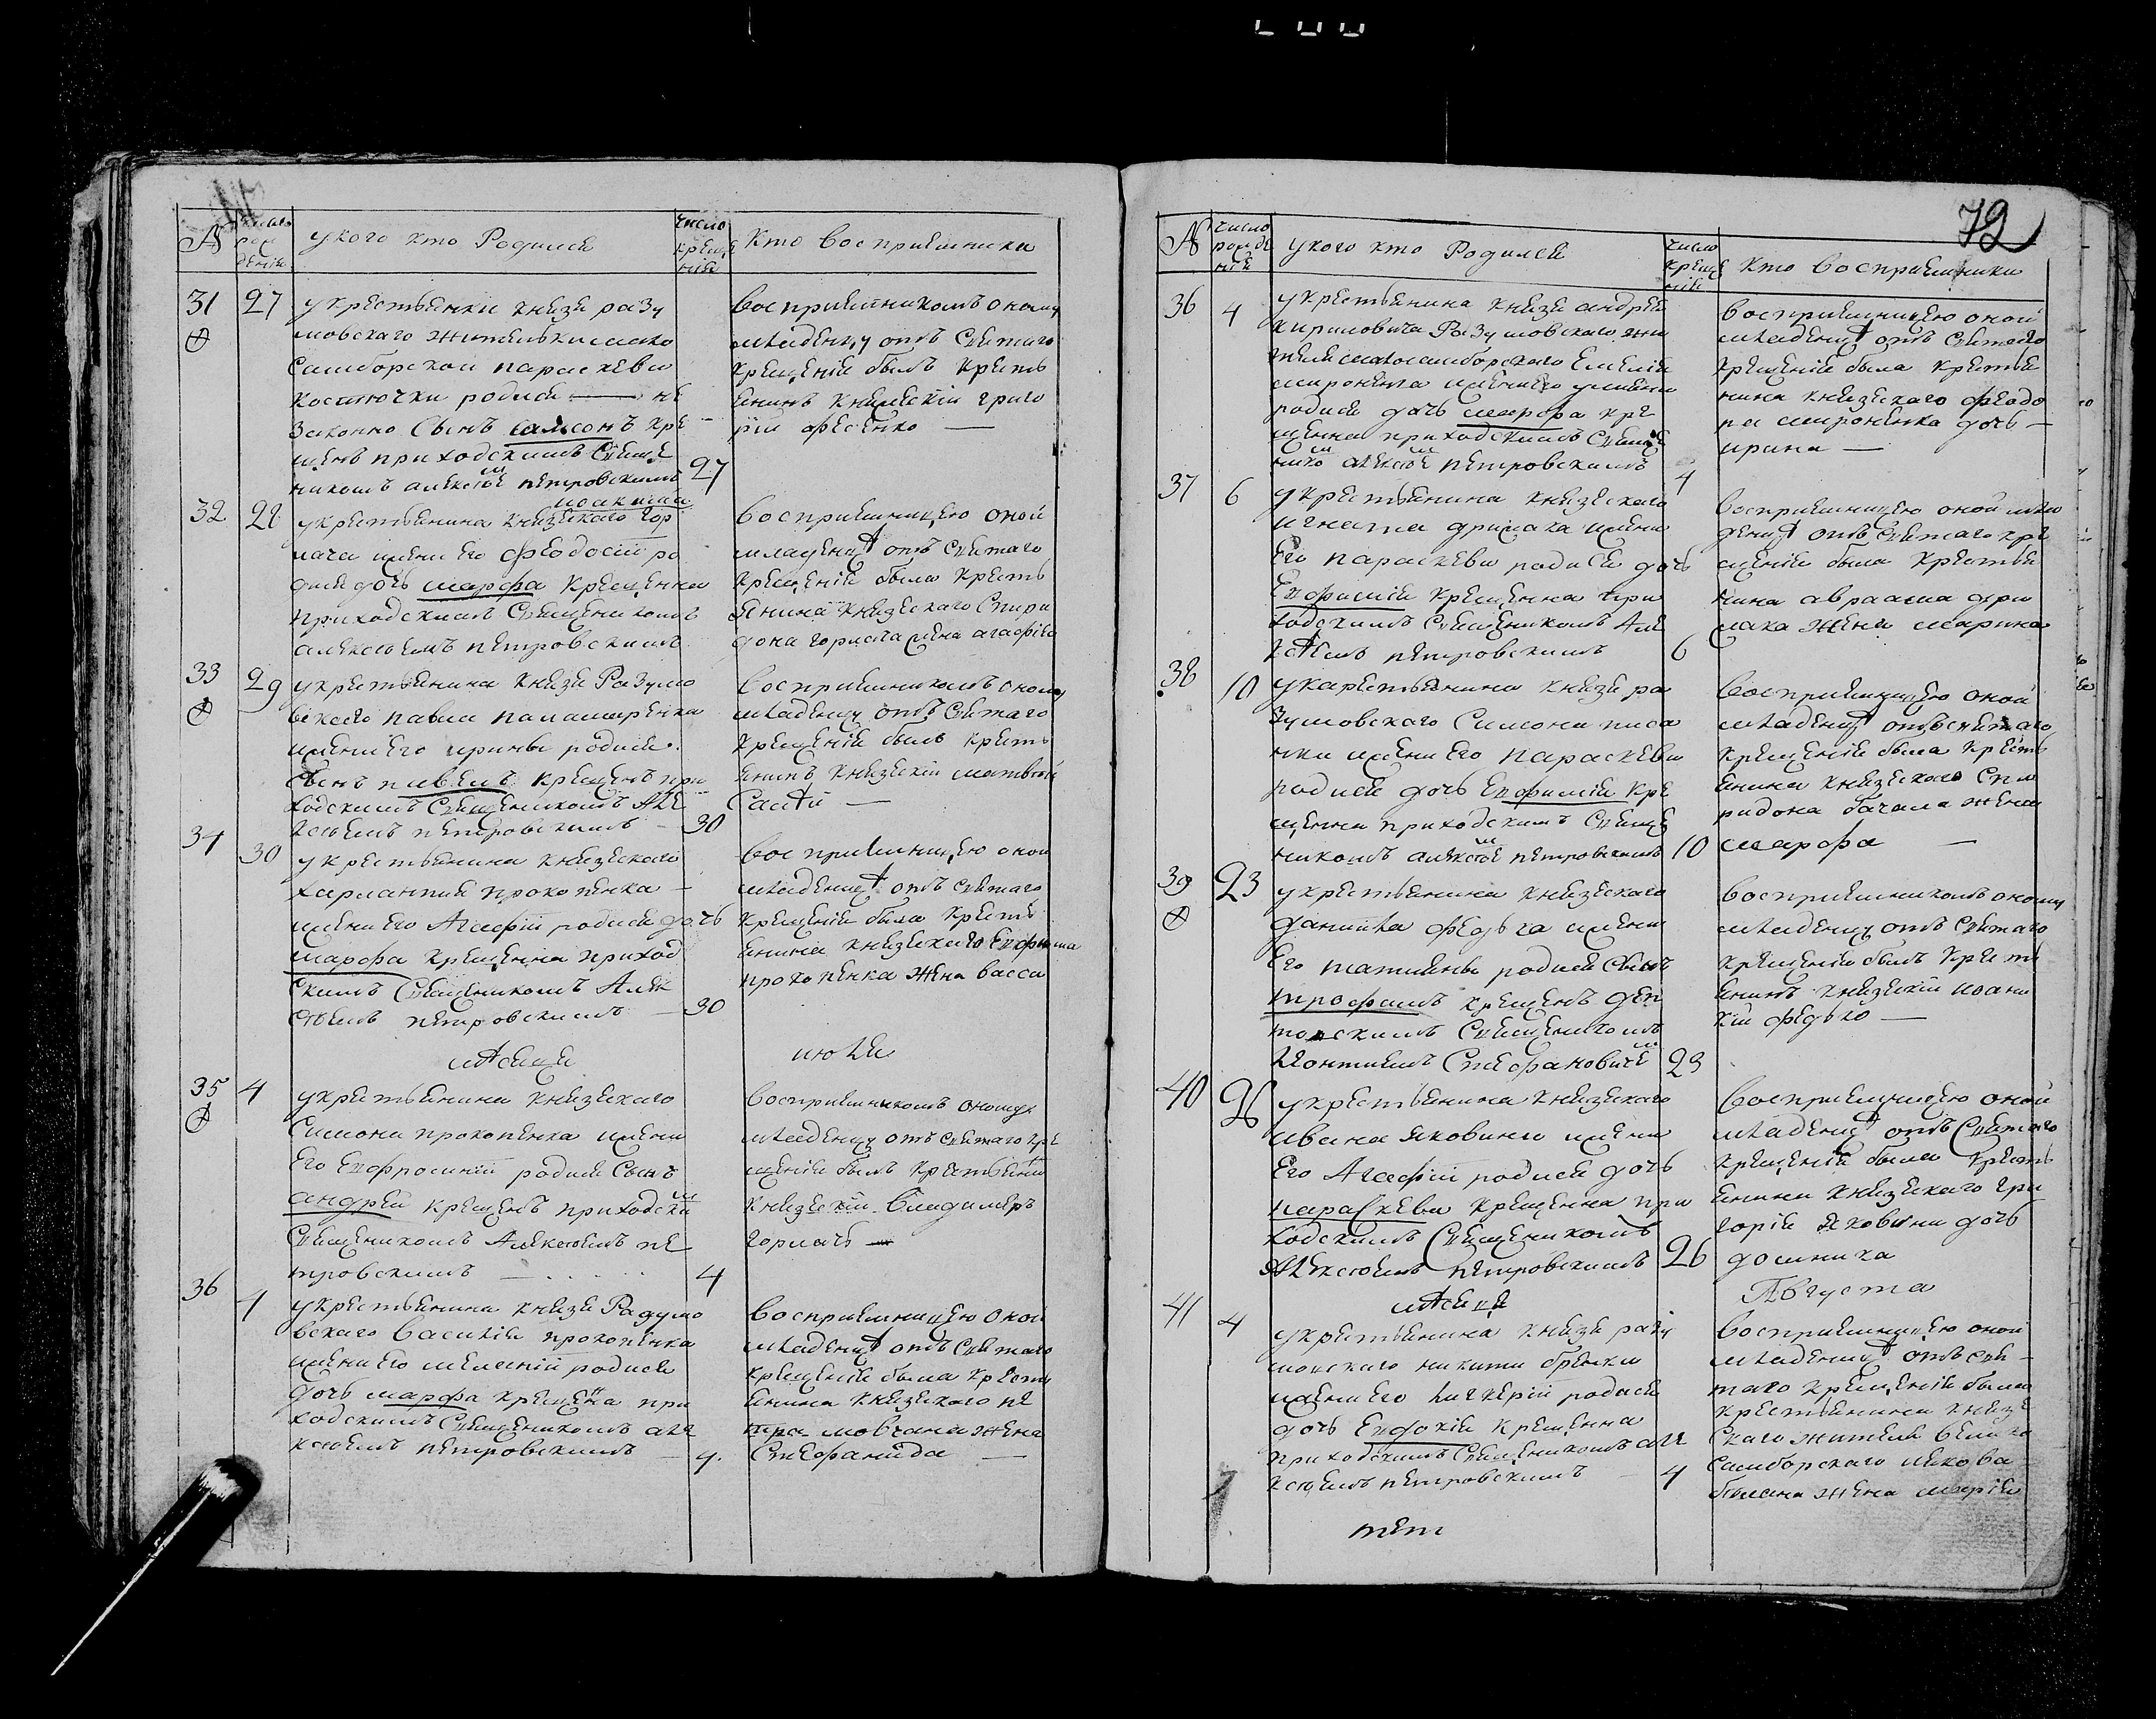 №
число рож дения
у кого кто Родился
число креще ния
Кто восприемники
31
27
у крестьянки князя разу
мовского жителки мало
самборской параскевы
костючки родися — не
законно сынъ самсонъ кре
щенъ приходскимъ свяще
никомъ алексѣе м петровскимъ
27
восприемникомъ оному
младенцу отъ святаго
крещения былъ кресть
янинъ княжескій григо
рій фесенко —
32
28
у крестьянина князского иоакима гор
лача жены его феодосіи ро
дися дочь марфа крещенна
приходскимъ священикомъ
алексѣемъ петровскимъ
восприемницею оной
младенцѣ отъ святаго
крещенія была кресть
янина князского спири
дона горлача жена агафія
33
29
у крестьянина князя Разумо
вского павла паламаренка
жены его ирины родися
сынъ павелъ крещенъ при
ходскимъ священикомъ але
ксѣемъ петровскимъ —
30
восприемникомъ оному
младенцу отъ святаго
крещенія былъ кресть
янинъ князскій матвѣй
34
30
у крестьянина князского
харлампия прокопенка —
жены его Агафіи родися дочь
марфа крещенна приход
скимъ священикомъ Алек
сѣемъ петровскимъ —
30
восприемницею оной
младенцѣ отъ святаго
крещенія была кресть
янина князского Евфима
прокопенка жена васса
мѣсяця
июля
35
4
у крестьянина князского
Симона прокопенка жены
его Евфросиніи родися сынъ
андрей крещенъ приходски м
священикомъ Алексѣемъ пе
тровскимъ —
4
восприемникомъ оному
младенцу отъ святаго кре
щенія былъ крестьянинъ
князскій Владимиръ
горлачъ —
36
4
у крестьянина князя Разумо
вского василія прокопенка
жены его меланіи родися
дочь марфа крещена при
ходскимъ священикомъ але
ксѣемъ петровскимъ —
4.
восприемницею оной
младенцѣ отъ святаго
крещенія была кресть
янина князского пе
тра мовчана жена
Стефанида —
72
№
число рожде ния
у кого кто Родился
число креще ния
Кто восприемники
36
4
у крестьянина князя андрея
кириловича Разумовского жи
теля малосамборского Емелия
мироненка жены его ульяны
родися дочь марфа кре
щенна приходскимъ свяще
нико м алексѣе м петровскимъ
4
восприемницею оной
младенцѣ отъ святаго
крещенія была крестья
нина князского феодо
ра миронѣнка дочь —
ирина —
37
6
у крестьянина князского
игната дримака жены
его параскевы родися дочь
Евфимія крещенна при
ходскимъ священикомъ Але
ксѣемъ петровскимъ
6
восприемницею оной мла
денцѣ отъ святаго кре
щенія была крестья
нина авраама дри
мака жена марина
38
10
у карестьянина князя ра
зумовского Симона писа
нки жены его параскевы
родися дочь Евфимія кре
щенна приходскимъ свяще
никомъ алексѣе м петровскимъ
10
восприемницею оной
младенцѣ отъ святаго
крещенія была кресть
янина князского спи
ридона бачала жена
марфа —
39
23
у крестьянина князского
даниила федька жены
его татияны родися сынъ
трофимъ крещенъ деп
товскимъ священикомъ
Леонтиемъ Стефановиче м
23
восприемникомъ оному
младенцу отъ святаго
крещенія былъ кресть
янинъ князскій иоани
кій федько —
40
26
у крестьянина князского
ивана яковины жены
его Агафіи родися дочь
параскева крещенна при
ходскимъ священикомъ
Алексѣемъ петровскимъ
26
восприемницею оной
младенцѣ отъ святаго
крещенія была кресть
янина князского гри
горія яковины дочь
домника
мѣсяця
Августа
41
4
у крестьянина князя разу
мовского никити бренки
жены его гликеріи родися
дочь Евдокія крещенна
приходскимъ священикомъ але
ксѣемъ петровскимъ —
4
восприемницею оной
младенцѣ отъ свя
таго крещенія была
крестьянина княз
ского жителя велико
самборского иякова
жена марія